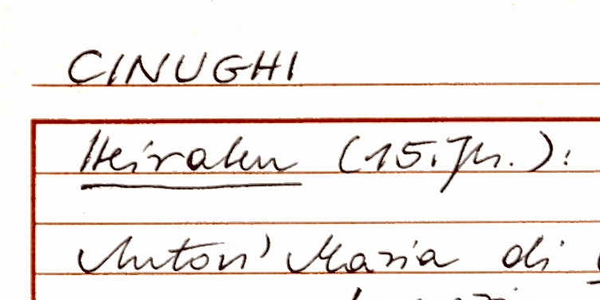 CINUGHI
Heiraten (15. Jh.):
Anton' Maria di